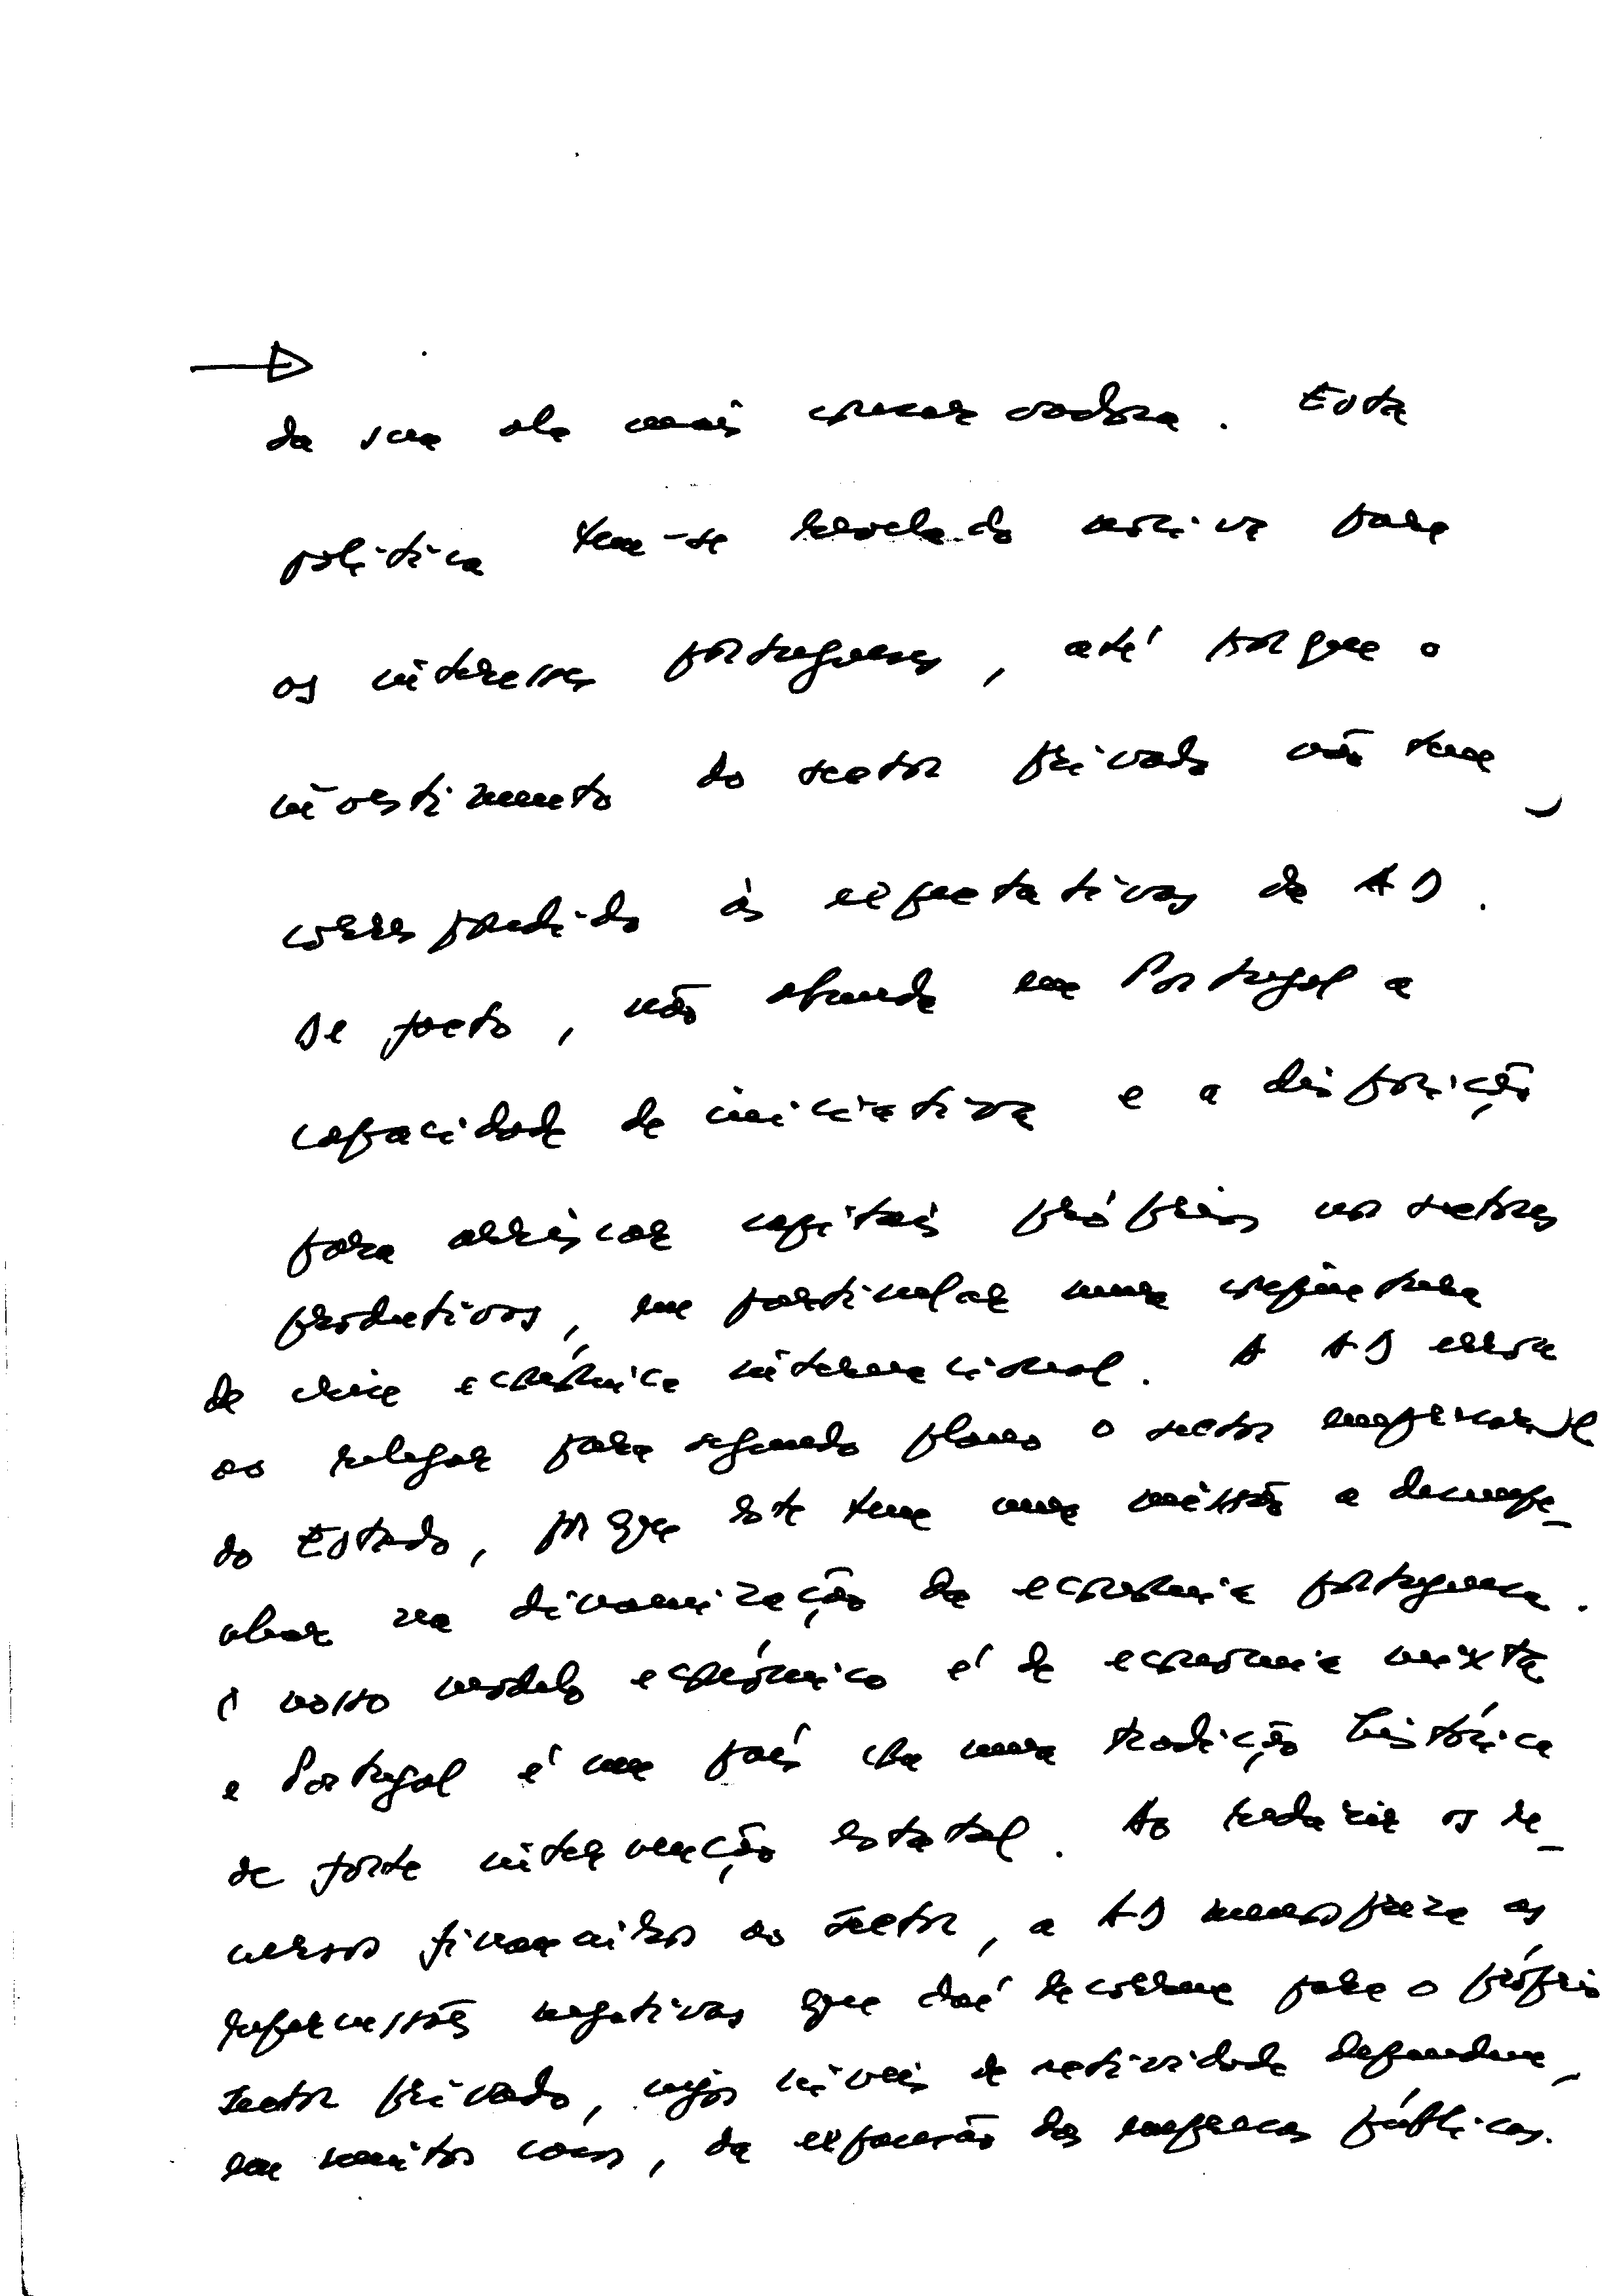 da sua ala mais conservadora. Esta
política tem-se revelado nociva para
os interesses portugueses, até porque o
investimento do sector privado não tem
correspondido às expectativas da AD.
De facto, não abunda em Portugal a
capacidade de iniciativa e a disposição
para arriscar capitais próprios nos sectores
produtivos, em particular numa conjuntura
de crise económica internacional. A AD errou
ao relegar para segundo plano o sector empresarial
do Estado, porque este tem uma missão a desempe-
nhar na dinamização da economia portuguesa.
O nosso modelo económico é de economia mixta
e Portugal é um país com uma tradição histórica
de forte intervenção estatal. Ao reduzir os re-
cursos financeiros ao sector, a AD menospreza as
repercussões negativas que daí decorrem para o próprio
sector privado, cujos níveis de actividade dependem,
em muitos casos, da expansão das empresas públicas.